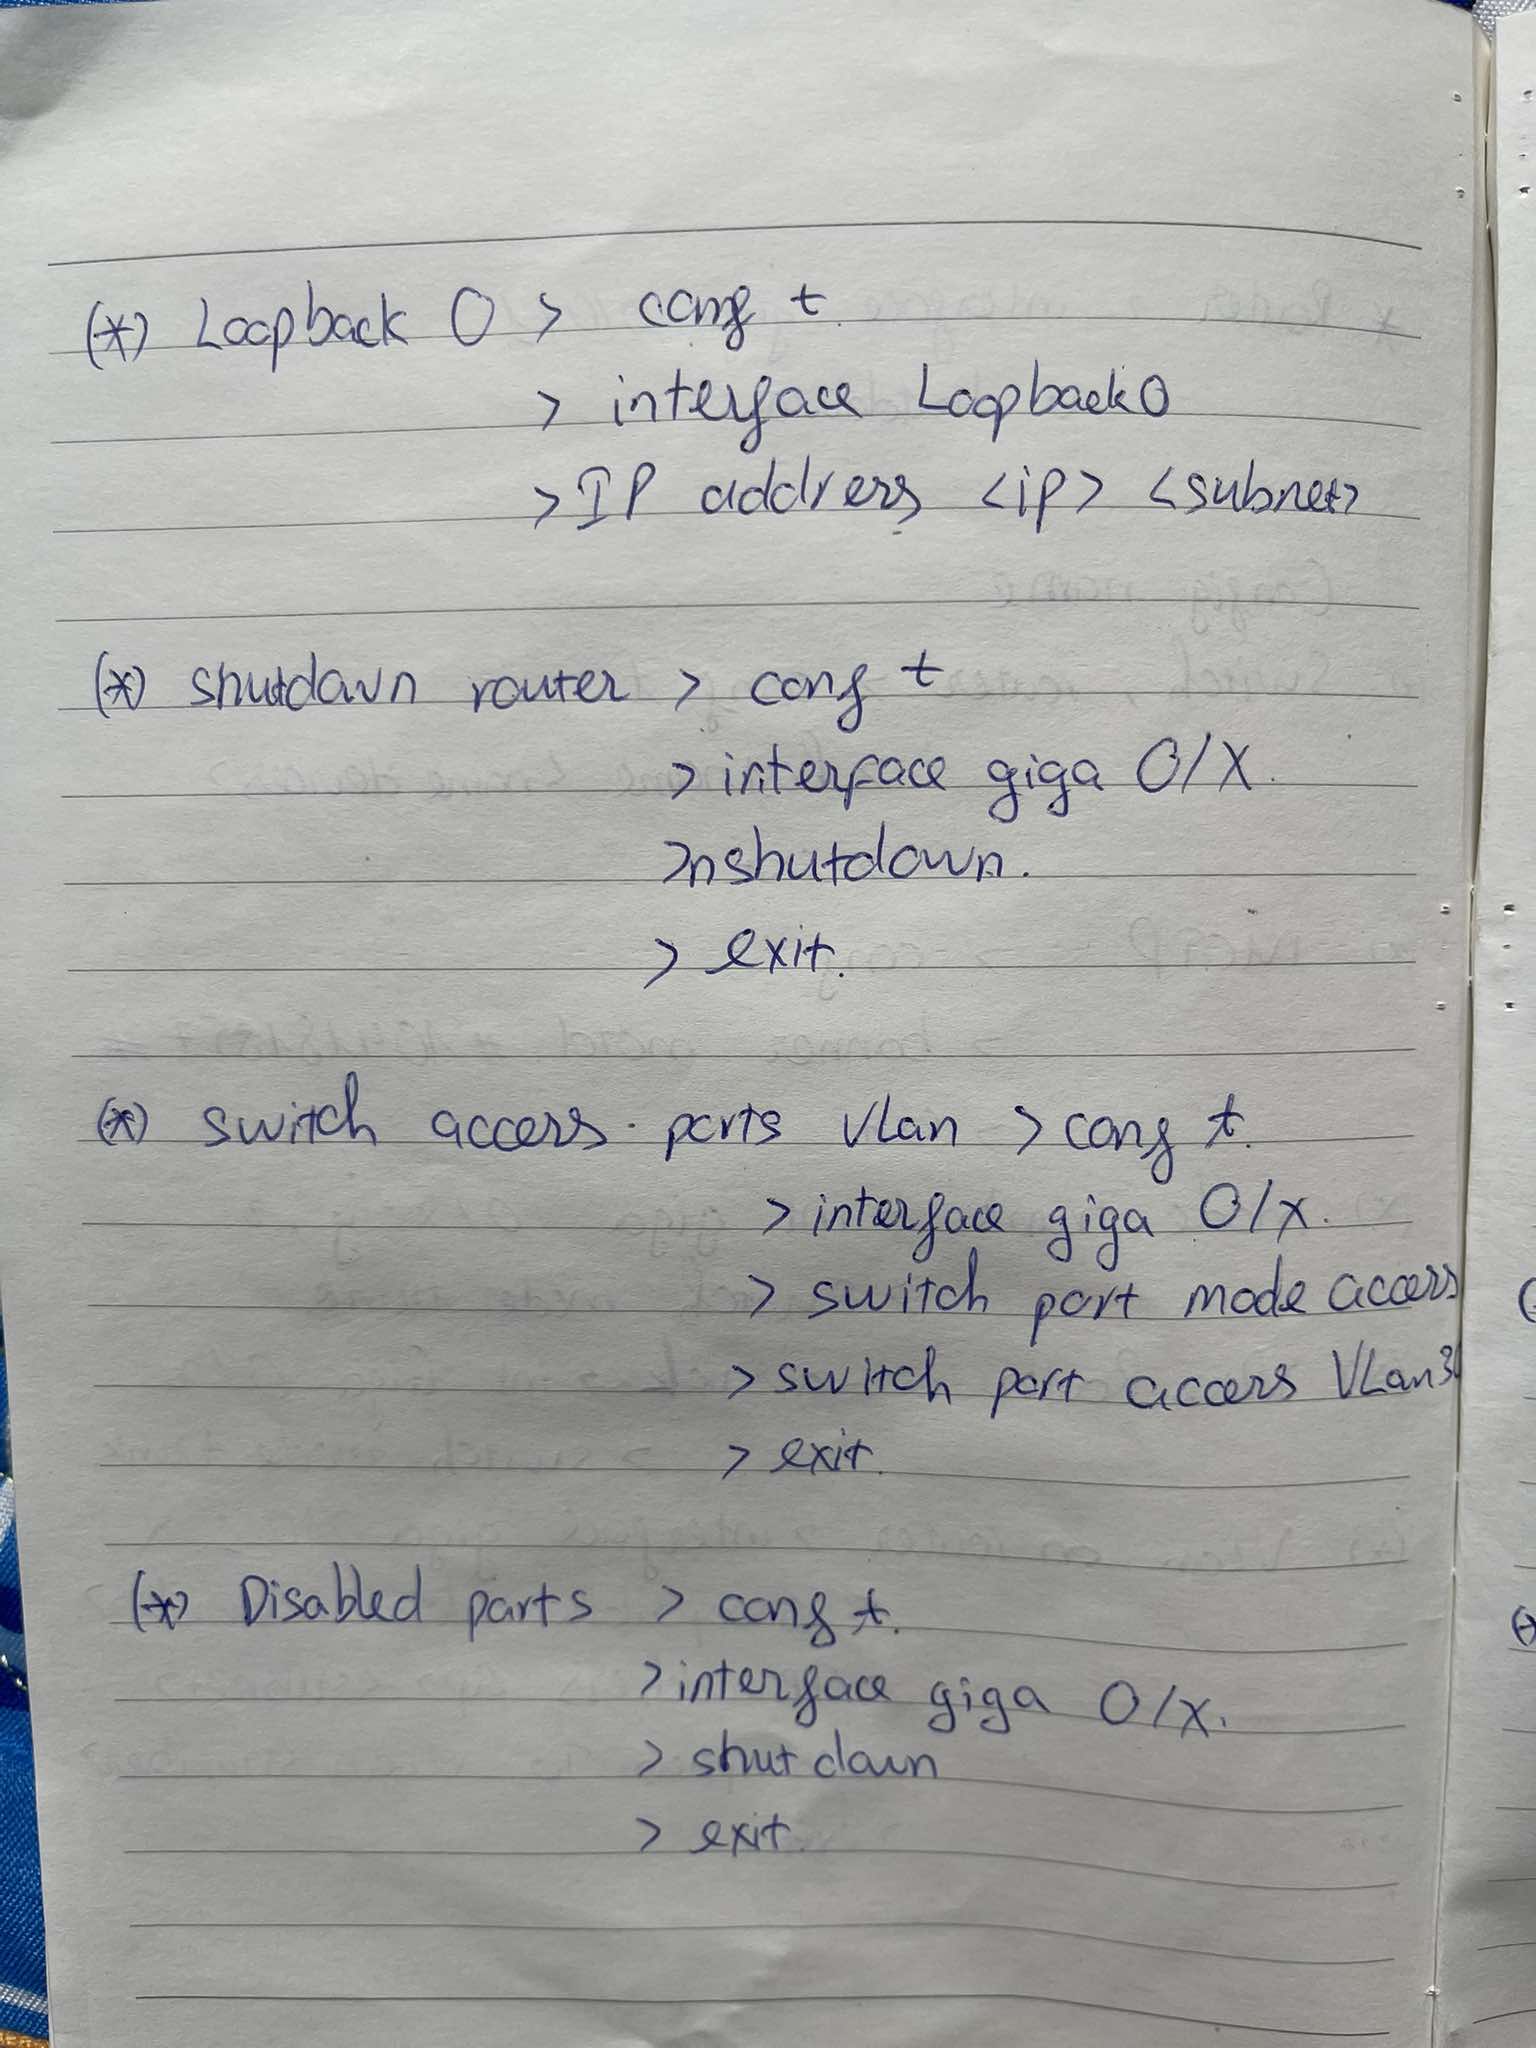 (*) Loopback 0 > conf t.
> interface Loopback0
> IP address <ip> <subnet>
(*) shutdown router > conf t
> interface giga 0/X.
>n shutdown.
> exit.
(*) switch access ports vlan > conf t.
> interface giga 0/x.
> switch port mode access
> switch port access VLan
> exit.
(*) Disabled ports > conf t.
> interface giga 0/x.
> shut down
> exit.